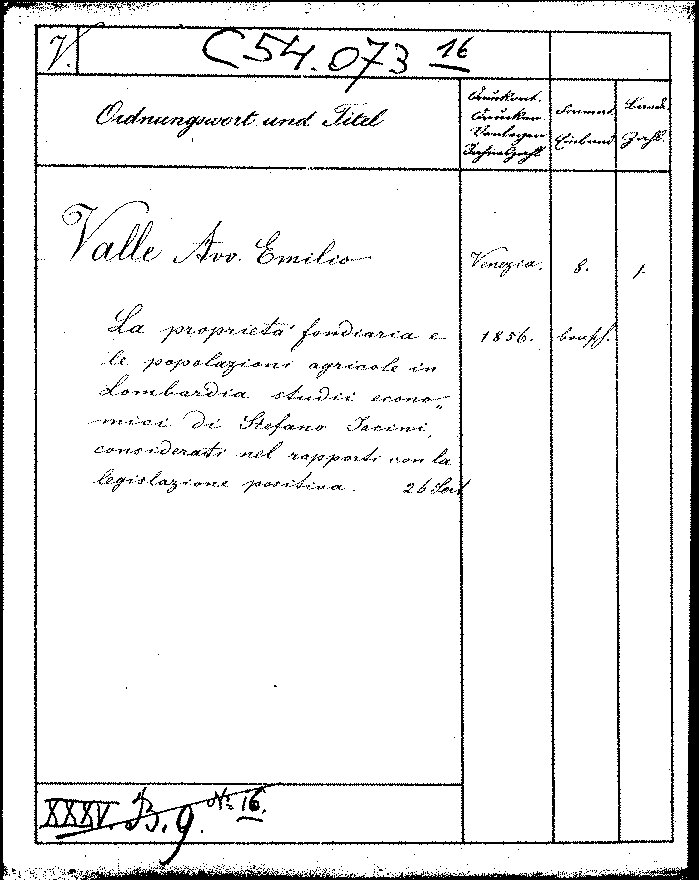 V. C54.073 16
Ordnungswort und Titel
Druckort.
Drucker.
Verleger
Jahreszahl.
Format.
Einband
Bände
Zahl.
Valle Avv. Emilio
Venezia. 8. 1.
La proprietà fondiaria e
1856. brosch.
le popolazioni agricole in
Lombardia studii econo„
mici di Stefano Jacini,
considerati nel rapporti con la
legislazione positiva. 26 Seit
XXXV. B. 9. No 16.